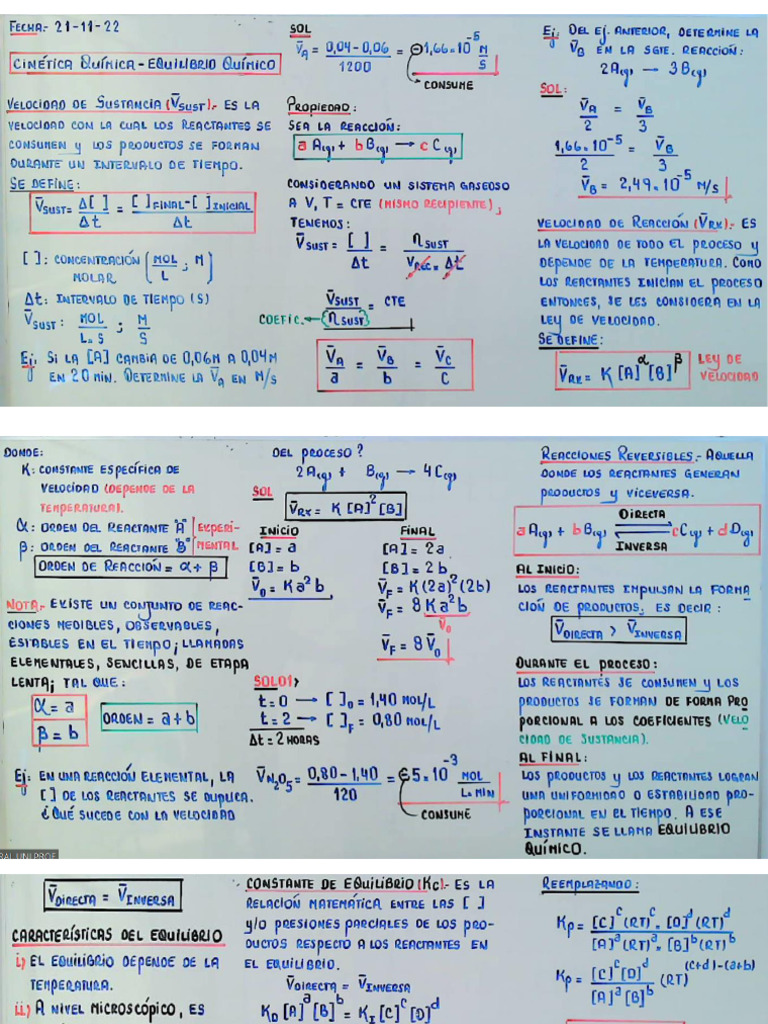 FECHA:- 21-11-22
CINÉTICA QUÍMICA - EQUILIBRIO QUÍMICO
VELOCIDAD DE SUSTANCIA (V̄SUST).- ES LA
VELOCIDAD CON LA CUAL LOS REACTANTES SE
CONSUMEN y LOS PRODUCTOS SE FORMAN
DURANTE UN INTERVALO DE TIEMPO.
SE DEFINE:
V̄SUST = Δ[ ] / Δt = ([ ]FINAL - [ ]INICIAL) / Δt
[ ]: CONCENTRACIÓN MOLAR (MOL/L ; M)
Δt: INTERVALO DE TIEMPO (S)
V̄SUST : MOL/L.S ; M/S
Ej: SI LA [A] CAMBIA DE 0,06M A 0,04M
EN 20 MIN. DETERMINE LA V̄A EN M/S
SOL
V̄A = (0,04 - 0,06) / 1200 = ⊖1,66.10⁻⁵ M/S
CONSUME
PROPIEDAD:
SEA LA REACCIÓN:
a A(g) + b B(g) → c C(g)
CONSIDERANDO UN SISTEMA GASEOSO
A V, T = CTE (MISMO RECIPIENTE),
TENEMOS:
V̄SUST = [ ] / Δt = ηSUST / (VREC. Δt)
V̄SUST / ηSUST = CTE
COEFIC.
V̄A/a = V̄B/b = V̄C/c
Ej: DEL Ej. ANTERIOR, DETERMINE LA
V̄B EN LA SGTE. REACCIÓN:
2A(g) → 3B(g)
SOL:
V̄A/2 = V̄B/3
1,66.10⁻⁵/2 = V̄B/3
V̄B = 2,49.10⁻⁵ M/S
VELOCIDAD DE REACCIÓN (V̄RX).- ES
LA VELOCIDAD DE TODO EL PROCESO y
DEPENDE DE LA TEMPERATURA. COMO
LOS REACTANTES INICIAN EL PROCESO
ENTONCES, SE LES CONSIDERA EN LA
LEY DE VELOCIDAD.
SE DEFINE:
V̄RX = K [A]^α [B]^β LEY DE VELOCIDAD
DONDE:
K: CONSTANTE ESPECÍFICA DE
VELOCIDAD (DEPENDE DE LA
TEMPERATURA).
α: ORDEN DEL REACTANTE "A" EXPERI-
β: ORDEN DEL REACTANTE "B" MENTAL
ORDEN DE REACCIÓN = α + β
NOTA.- EXISTE UN CONJUNTO DE REAC-
CIONES MEDIBLES, OBSERVABLES,
ESTABLES EN EL TIEMPO; LLAMADAS
ELEMENTALES, SENCILLAS, DE ETAPA
LENTA; TAL QUE:
α = a
β = b
ORDEN = a + b
Ej: EN UNA REACCIÓN ELEMENTAL, LA
[ ] DE LOS REACTANTES SE DUPLICA.
¿QUÉ SUCEDE CON LA VELOCIDAD
RAL UNI PROF
DEL PROCESO?
2A(g) + B(g) → 4C(g)
SOL
V̄RX = K [A]² [B]
INICIO FINAL
[A] = a [A] = 2a
[B] = b [B] = 2b
V̄0 = Ka²b V̄F = K(2a)²(2b)
V̄F = 8 Ka²b
V̄0
V̄F = 8 V̄0
SOL01
t = 0 → [ ]0 = 1,40 MOL/L
t = 2 → [ ]F = 0,80 MOL/L
Δt = 2 HORAS
V̄N2O5 = (0,80 - 1,40) / 120 = ⊖5.10⁻³ MOL/L.MIN
CONSUME
REACCIONES REVERSIBLES.- AQUELLA
DONDE LOS REACTANTES GENERAN
PRODUCTOS y VICEVERSA.
a A(g) + b B(g) ⇌ c C(g) + d D(g)
DIRECTA
INVERSA
AL INICIO:
LOS REACTANTES IMPULSAN LA FORMA
CIÓN DE PRODUCTOS, ES DECIR:
V̄DIRECTA > V̄INVERSA
DURANTE EL PROCESO:
LOS REACTANTES SE CONSUMEN y LOS
PRODUCTOS SE FORMAN DE FORMA PRO
PORCIONAL A LOS COEFICIENTES (VELO
CIDAD DE SUSTANCIA).
AL FINAL:
LOS PRODUCTOS y LOS REACTANTES LOGRAN
UNA UNIFORMIDAD O ESTABILIDAD PRO-
PORCIONAL EN EL TIEMPO. A ESE
INSTANTE SE LLAMA EQUILIBRIO
QUÍMICO.
V̄DIRECTA = V̄INVERSA
CARACTERÍSTICAS DEL EQUILIBRIO
i) EL EQUILIBRIO DEPENDE DE LA
TEMPERATURA.
ii) A NIVEL MICROSCÓPICO, ES
CONSTANTE DE EQUILIBRIO (Kc).- ES LA
RELACIÓN MATEMÁTICA ENTRE LAS [ ]
y/o PRESIONES PARCIALES DE LOS PRO-
DUCTOS RESPECTO A LOS REACTANTES EN
EL EQUILIBRIO.
V̄DIRECTA = V̄INVERSA
KD [A]^a [B]^b = KI [C]^c [D]^d
REEMPLAZANDO:
Kp = [C]^c (RT)^c . [D]^d (RT)^d / [A]^a (RT)^a . [B]^b (RT)^b
Kp = [C]^c [D]^d / [A]^a [B]^b (RT)^(c+d)-(a+b)